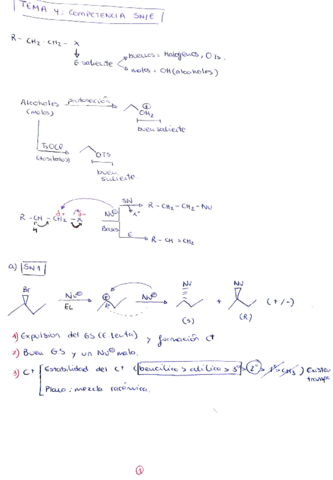 TEMA 4: COMPETENCIA SN/E
R - CH2 - CH2 - X
G saliente
buenos: Halogenos, OTs.
malos: OH (alcoholes)
Alcoholes protonación
(malos)
OH2
buen saliente
TsOCl
(tosilato)
OTS
buen
saliente
SN R - CH2 - CH2 - NU
Nu⊖
R - CH - CH2 - X
Bases
H
E R - CH = CH2
a) SN1
Br
Nu⊖
EL
Nu⊖
NU + NU (+/-)
(S) (R)
1) Expulsion del GS (E. lenta) y formación C+
2) Buen G.S y un Nu⊖ malo.
3) C+ Estabilidad del C+ (bencílico > alílico > 3º > 2º > 1º > CH3)
Plano: mezcla racémica.